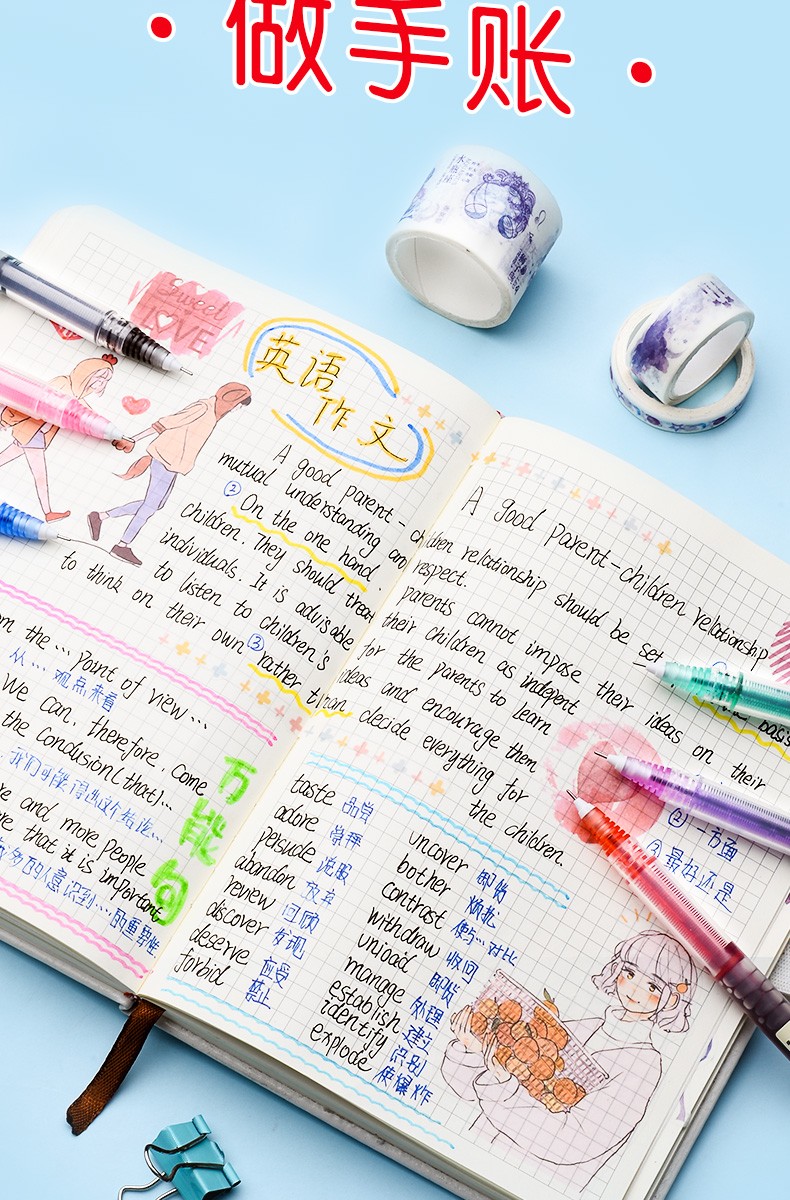 ·做手账·
Sweet
LOVE
英语
作文
A good parent-ch
mutual understanding and
② On the one hand.
children. They should treat
individuals. It is advisable
to listen to children's
to think on their own ③ rather than
A good parent-children relationship
ldren relationship should be set
respect.
parents cannot impose their ideas on their
their children as indepent
for the parents to learn
ideas and encourage them
decide everything for
the children.
② 一方面
③ 最好还是
the ... point of view ...
从... 观点来看
We can, therefore, come
the conclusion (that)...
我们可能得出这个结论...
and more people
that it is important
人意识到...的重要性
万能句
taste 品尝
adore 崇拜
persude 说服
abandon 放弃
review 回顾
discover 发现
deserve 应受
forbid 禁止
uncover 卸货
bother 烦扰
contrast 使与...对比
withdraw 收回
unload 卸货
manage 处理
establish 建立
identify 识别
explode 使爆炸